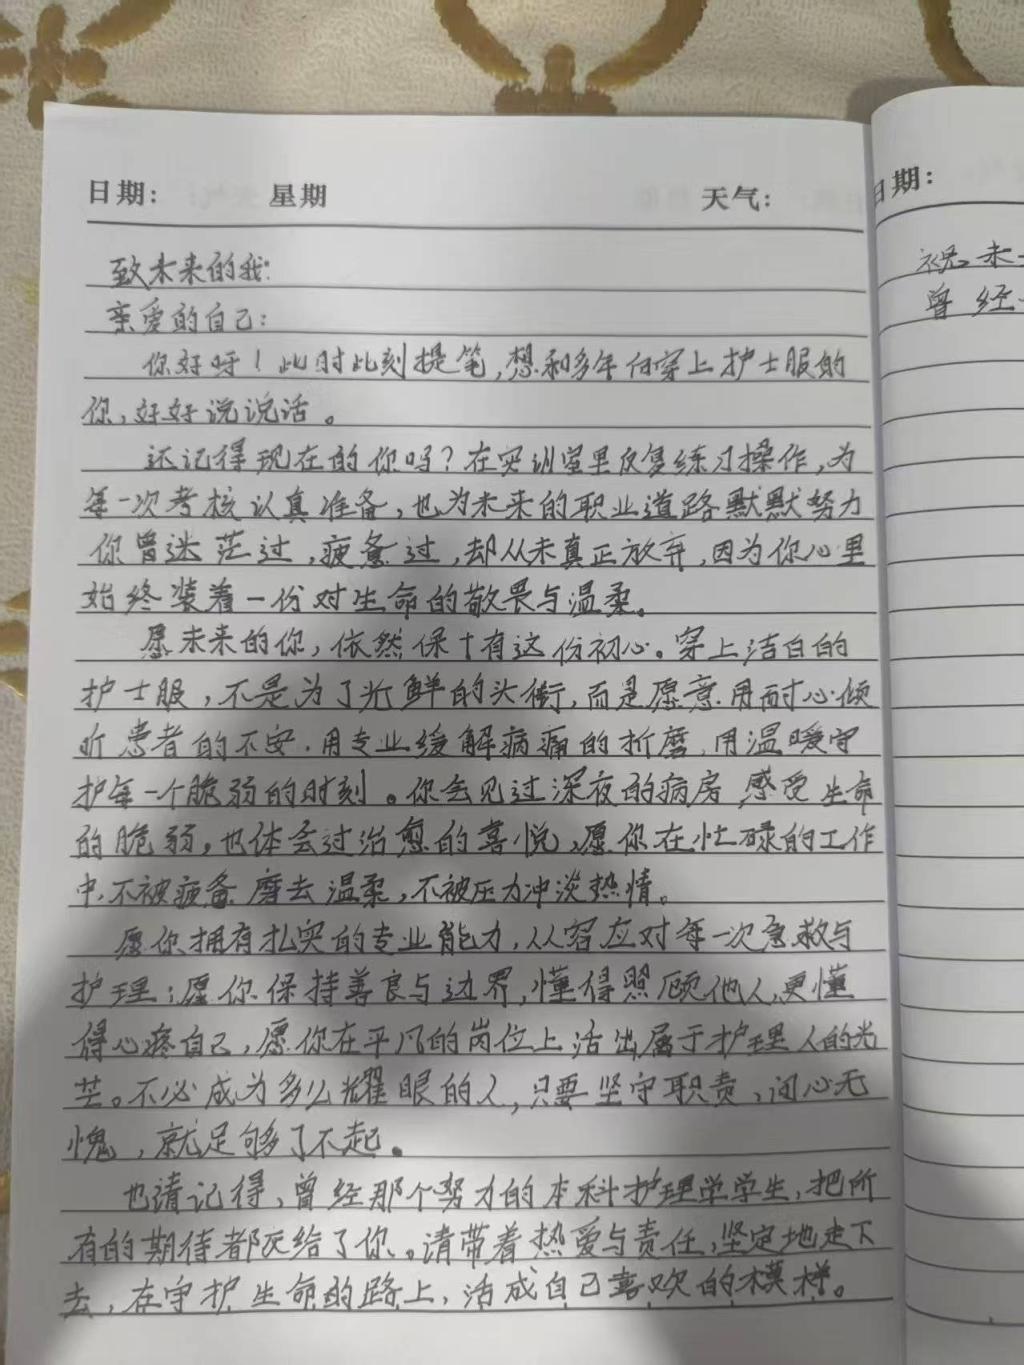 日期： 星期 天气：
致未来的我：
亲爱的自己：
你好呀！此时此刻提笔，想和多年后穿上护士服的
你，好好说说话。
还记得现在的你吗？在实训室里反复练习操作，为
每一次考核认真准备，也为未来的职业道路默默努力
你曾迷茫过，疲惫过，却从未真正放弃，因为你心里
始终装着一份对生命的敬畏与温柔。
愿未来的你，依然保有这份初心。穿上洁白的
护士服，不是为了光鲜的头衔，而是愿意用耐心倾
听患者的不安，用专业缓解病痛的折磨，用温暖守
护每一个脆弱的时刻。你会见过深夜的病房 感受生命
的脆弱，也体会过治愈的喜悦，愿你在忙碌的工作
中，不被疲惫磨去温柔，不被压力冲淡热情。
愿你拥有扎实的专业能力，从容应对每一次急救与
护理；愿你保持善良与边界，懂得照顾他人，更懂
得心疼自己，愿你在平凡的岗位上活出属于护理人的光
芒。不必成为多么耀眼的人，只要坚守职责，问心无
愧，就足够了不起。
也请记得，曾经那个努力的本科护理学学生，把所
有的期待都交给了你。请带着热爱与责任，坚定地走下
去，在守护生命的路上，活成自己喜欢的模样。
日期：
祝未
曾经